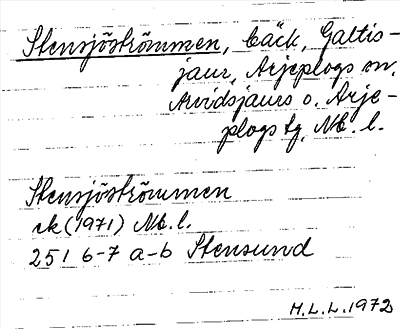 Stensjöströmmen, bäck, Galtis-
jaur, Arjeplogs sn.
Arvidsjaurs o. Arje-
plogs tg, Nb. l.
Stensjöströmmen
ek (1971) Nb. l.
251 6-7 a-b Stensund
H.L.L. 1972